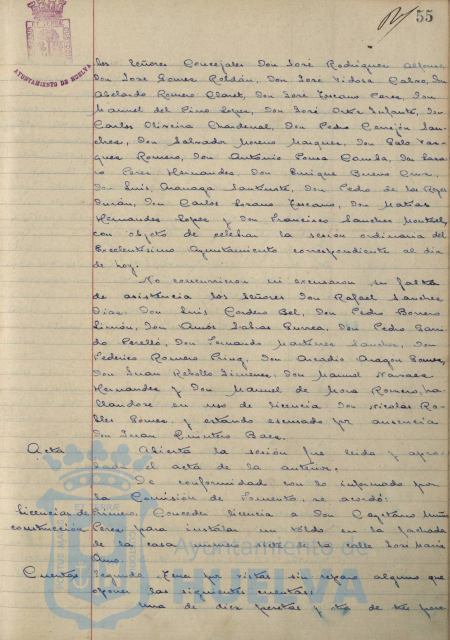 55
AYUNTAMIENTO DE HUELVA
los Señores Concejales Don José Rodríguez Alfonso
Don José Gomez Roldán, Don José Vidosa Calvo, Don
Abelardo Romero Claret, Don José Toscano Perez, Don
Manuel del Pino Lopez, Don José Ortiz Infante, Don
Carlos Oliveira Chardenal, Don Pedro Cerrejón San-
chez, Don Salvador Moreno Marquez, Don Galo Vaz-
quez Romero, Don Antonio Pousa Camba, Don Laza-
ro Perez Hernandez, Don Enrique Bueno Cruz,
Don Luis Santuste, Don Pedro de los Reyes
Durán, Don Carlos Lozano Toscano, Don Matías
Hernandez Lopez y Don Francisco Sanchez
con objeto de celebrar la sesión ordinaria del
Excelentísimo Ayuntamiento correspondiente al dia
de hoy.
No concurrieron ni excusaron su falta
de asistencia los Señores Don Rafael Sanchez
Diaz, Don Luis Cordero Bel, Don Pedro Borrero
Limón, Don Amós Sabras Gurrea, Don Pedro Garri-
do Perelló, Don Fernando Martinez Sanchez, Don
Federico Romero Don Arcadio Aragon Gomez,
Don Juan Rebollo Jimenez, Don Manuel Narvaez
Hernandez y Don Manuel de Mora Romero, ha-
llandose en uso de licencia Don Nicolás Ro-
bles Gomez, y estando excusado por ausencia
Don Juan Quintero Baez.
Acta Abierta la sesión fue leida y apro-
bada el acta de la anterior.
De conformidad con lo informado por
la Comisión de Fomento, se acordó:
Licencias de Primero. Conceder licencia a Don Cayetano
construcción Perez para instalar un toldo en la fachada
de la casa número siete de la calle José María
Amo.
Cuentas Segundo. Tener por vistas sin reparo alguno que
oponer las siguientes cuentas:
Una de diez pesetas y otra de
Ayuntamiento de
HUELVA